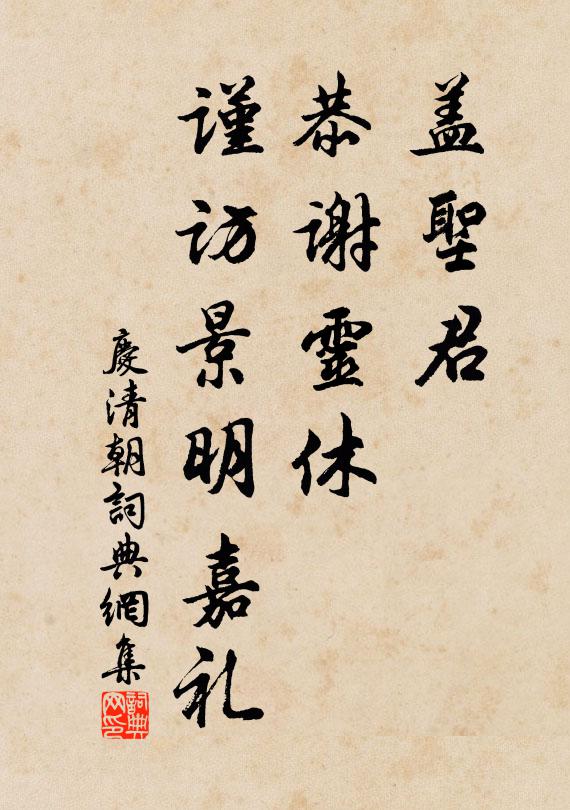 盖聖君
恭謝靈休
謹訪景明嘉礼
慶清朝詞典網集
詞典网印